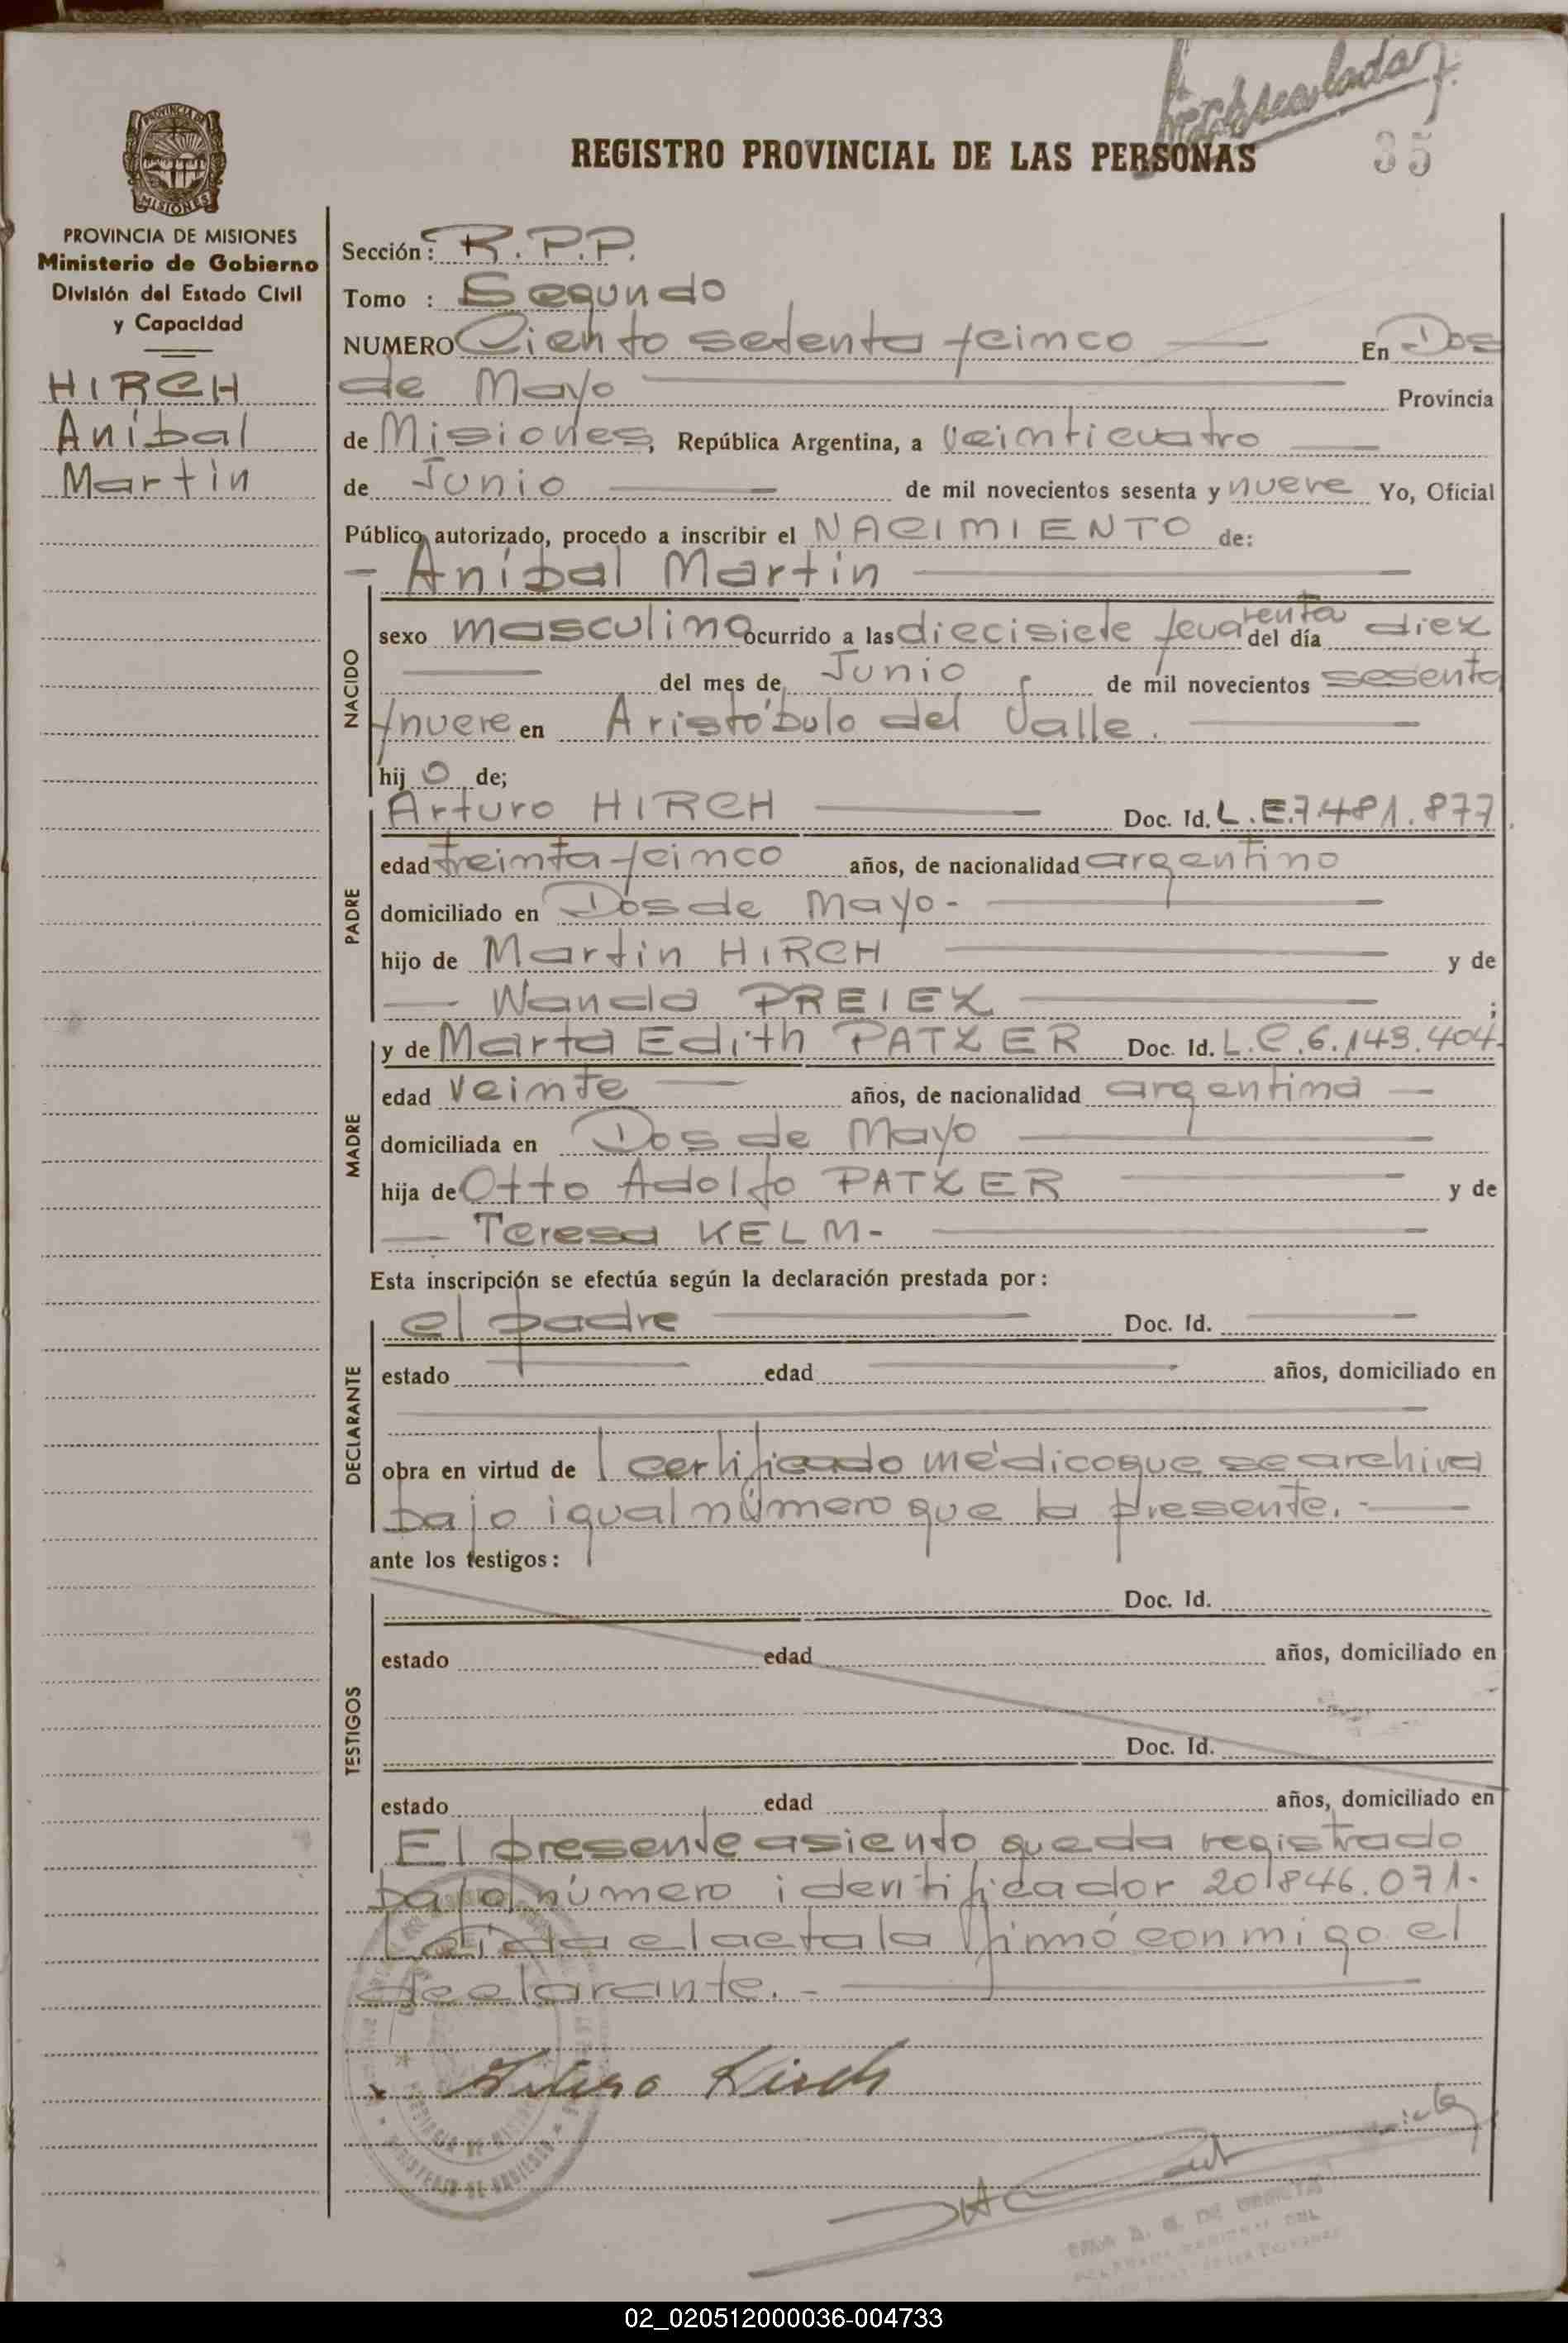 Matriculado
REGISTRO PROVINCIAL DE LAS PERSONAS
35
PROVINCIA DE
MISIONES
PROVINCIA DE MISIONES
Ministerio de Gobierno
División del Estado Civil
y Capacidad
HIRCH
Aníbal
Martín
Sección: R.P.P.
Tomo : Segundo
NUMERO Ciento setenta y cinco En Dos
de Mayo Provincia
de Misiones, República Argentina, a veinticuatro
de Junio de mil novecientos sesenta y nueve Yo, Oficial
Público autorizado, procedo a inscribir el NACIMIENTO de:
- Aníbal Martín
NACIDO
sexo masculino ocurrido a las diecisiete y cuarenta del día diez
del mes de Junio de mil novecientos sesenta
y nueve en Aristóbulo del Valle.
hij o de;
PADRE
Arturo HIRCH Doc. Id. L.E.7.481.877
edad treinta y cinco años, de nacionalidad argentino
domiciliado en Dos de Mayo-
hijo de Martin HIRCH y de
Wanda PREIEZ ;
MADRE
y de Marta Edith PATZER Doc. Id. L.C.6.143.404.
edad veinte años, de nacionalidad argentina
domiciliada en Dos de Mayo
hija de Otto Adolfo PATZER y de
Teresa KELM-
Esta inscripción se efectúa según la declaración prestada por:
DECLARANTE
el padre Doc. Id.
estado edad años, domiciliado en
obra en virtud de l certificado médico que se archiva
bajo igual número que la presente.-
ante los testigos:
TESTIGOS
Doc. Id.
estado edad años, domiciliado en
Doc. Id.
estado edad años, domiciliado en
El presente asiento queda registrado
bajo número identificador 20.846.071.
Leida el acta la firmó conmigo el
declarante.-
Arturo Hirch
PROVINCIA DE MISIONES
MINISTERIO DE GOBIERNO
02_020512000036-004733